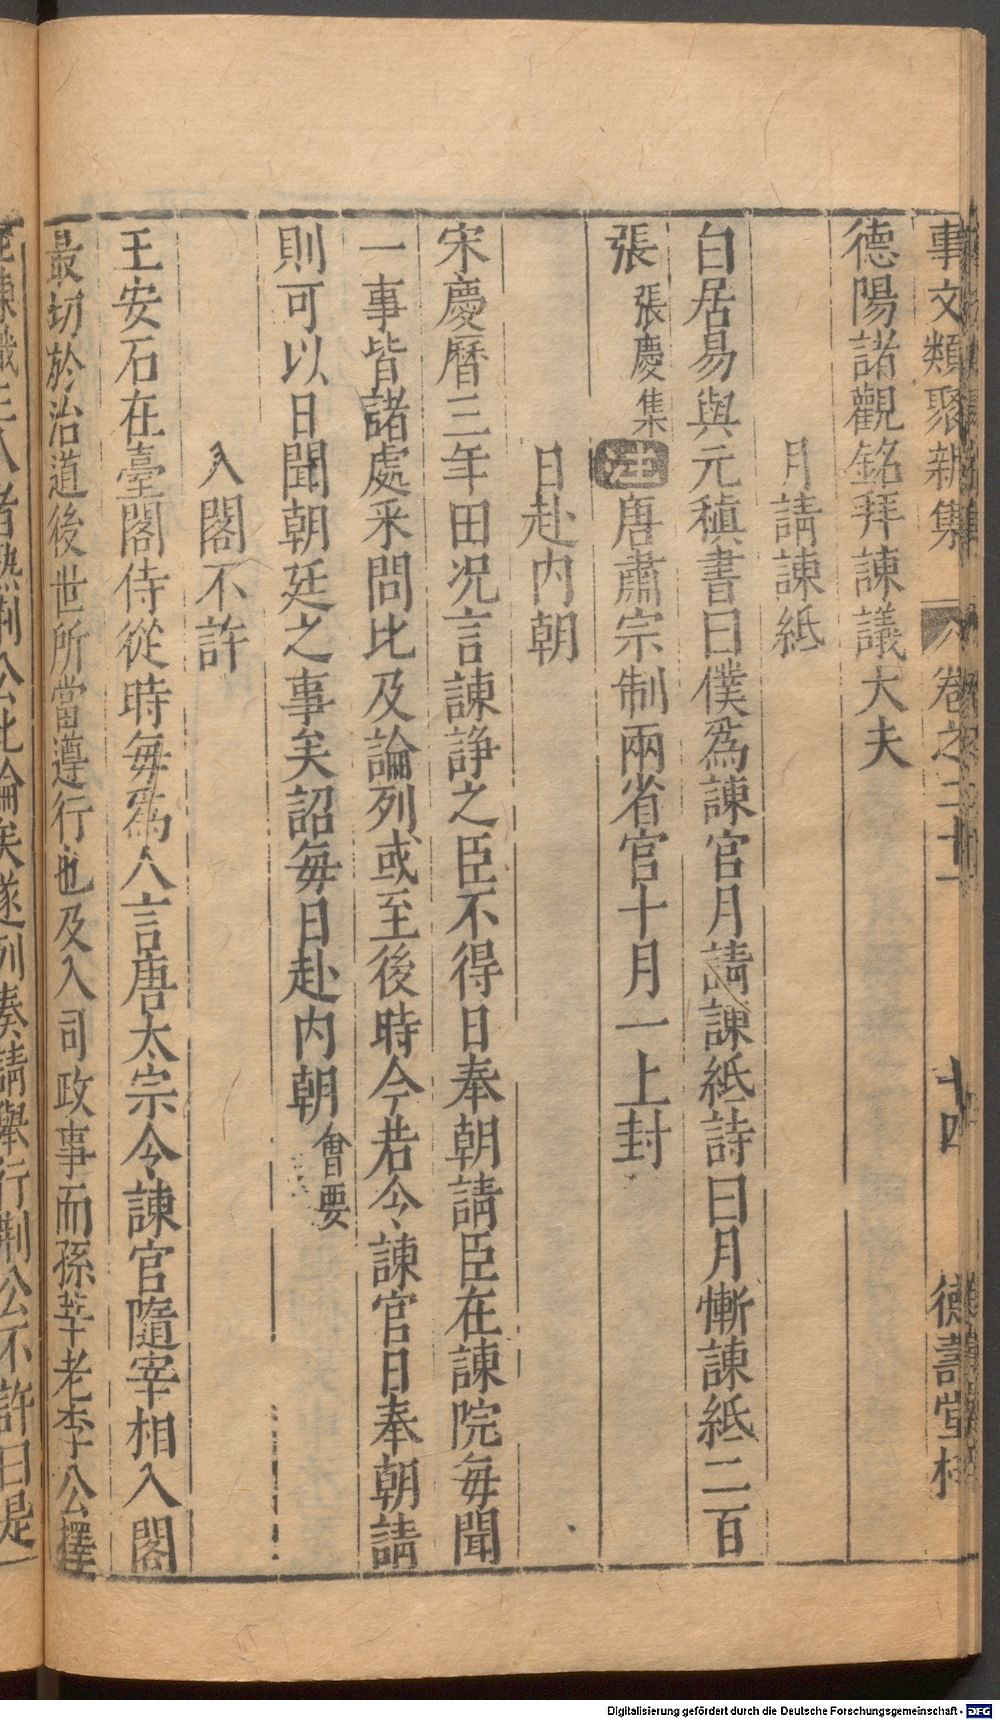 事文類聚新集 卷之二十一 十四 德壽堂梓
德陽諸觀銘拜諫議大夫
月請諫紙
白居易與元稹書曰僕爲諫官月請諫紙詩曰月慚諫紙二百
張 張慶集 注 唐肅宗制兩省官十月一上封
日赴内朝
宋慶曆三年田况言諫諍之臣不得日奉朝請臣在諫院每聞
一事皆諸處采問比及論列或至後時今若令諫官日奉朝請
則可以日聞朝廷之事矣詔每日赴内朝 會要
入閣不許
王安石在臺閣侍從時每爲人言唐太宗令諫官隨宰相入閣
最切於治道後世所當遵行也及入司政事而孫莘老李公擇
在諫職二人者熟荆公此論矣遂列奏請舉行荆公不許曰是
Digitalisierung gefördert durch die Deutsche Forschungsgemeinschaft - DFG